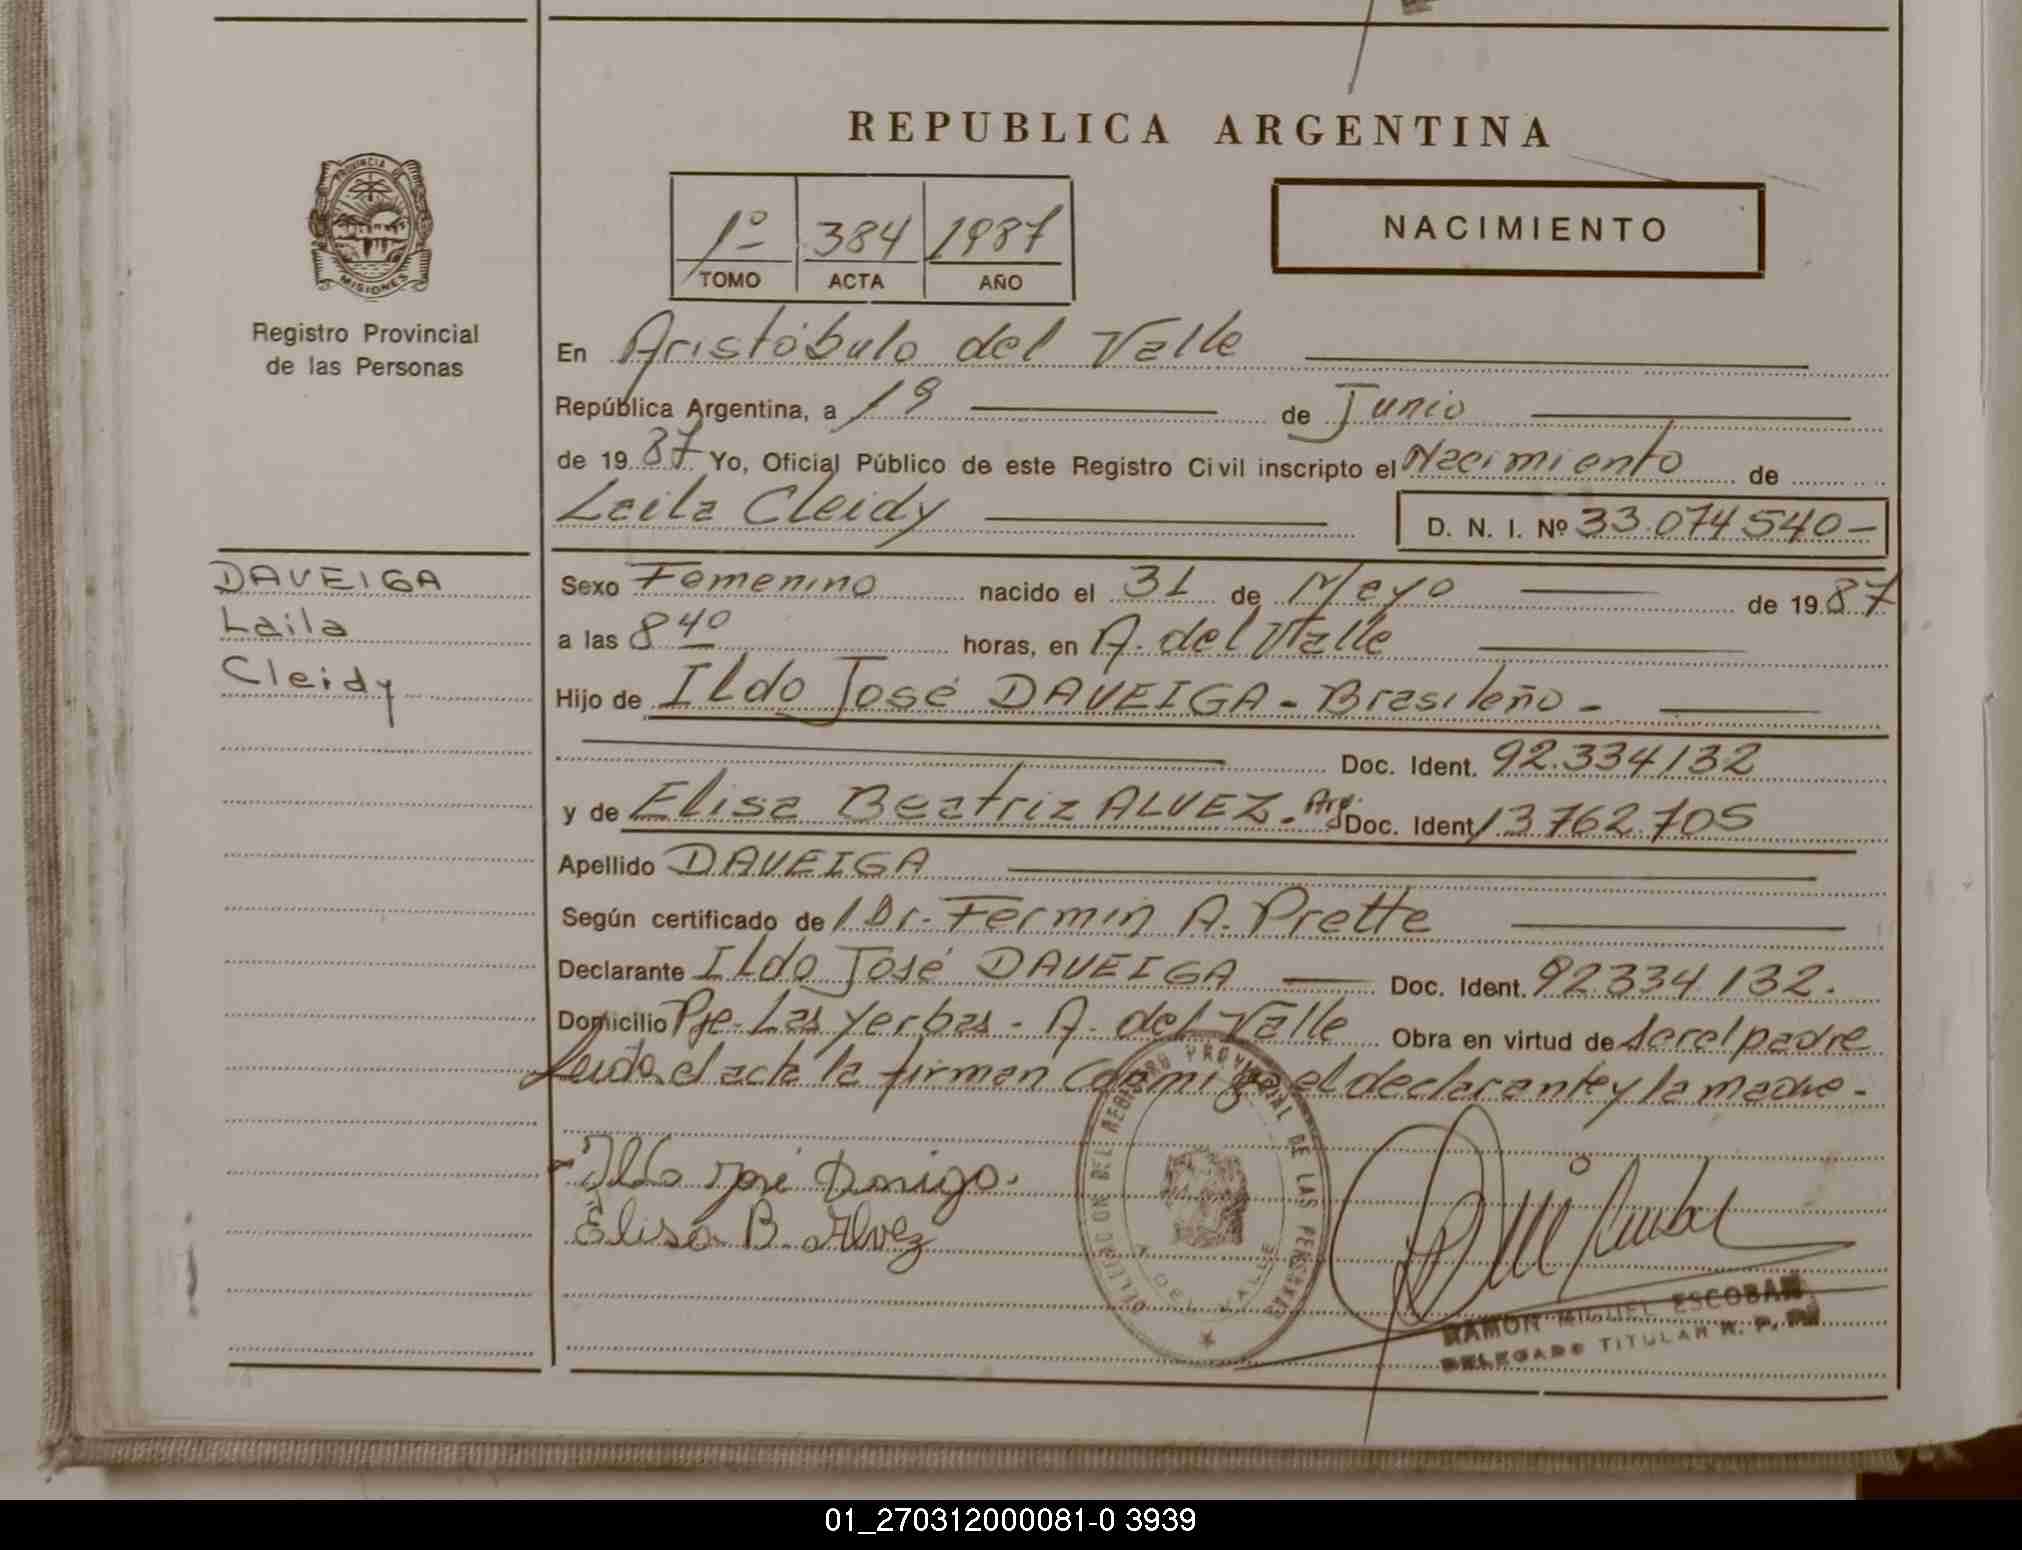 REPUBLICA ARGENTINA
PROVINCIA DE
MISIONES
Registro Provincial
de las Personas
1º 384 1987
TOMO ACTA AÑO
NACIMIENTO
En Aristóbulo del Valle
República Argentina, a 19 de Junio
de 1987 Yo, Oficial Público de este Registro Civil inscripto el Nacimiento de
Laila Cleidy D. N. I. Nº 33.074540-
DAVEIGA
Laila
Cleidy
Sexo Femenino nacido el 31 de Mayo de 1987
a las 8 40 horas, en A. del Valle
Hijo de Ildo José DAVEIGA - Brasileño -
Doc. Ident. 92.334132
y de Elisa Beatriz ALVEZ. Arg. Doc. Ident 13762.705
Apellido DAVEIGA
Según certificado de l Dr. Fermin A. Prette
Declarante Ildo José DAVEIGA Doc. Ident. 92334.132.
Domicilio Pje. Las Yerbas - A. del Valle Obra en virtud de ser el padre
Leida el acta la firman conmigo el declarante y la madre -
Ildo José
Elisa B. Alvez
DELEGACION DEL REGISTRO PROVINCIAL DE LAS PERSONAS
A. DEL VALLE
RAMON MIGUEL ESCOBAR
DELEGADO TITULAR R. P. P.
01_270312000081-0 3939